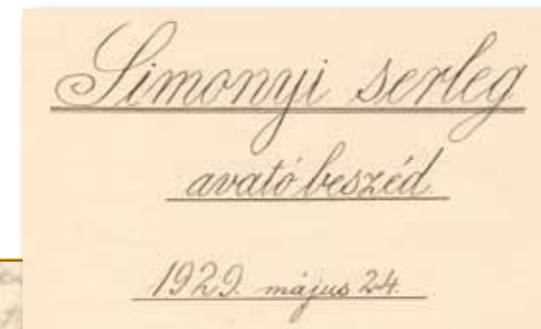 Simonyi serleg
avató beszéd
1929. május 24.